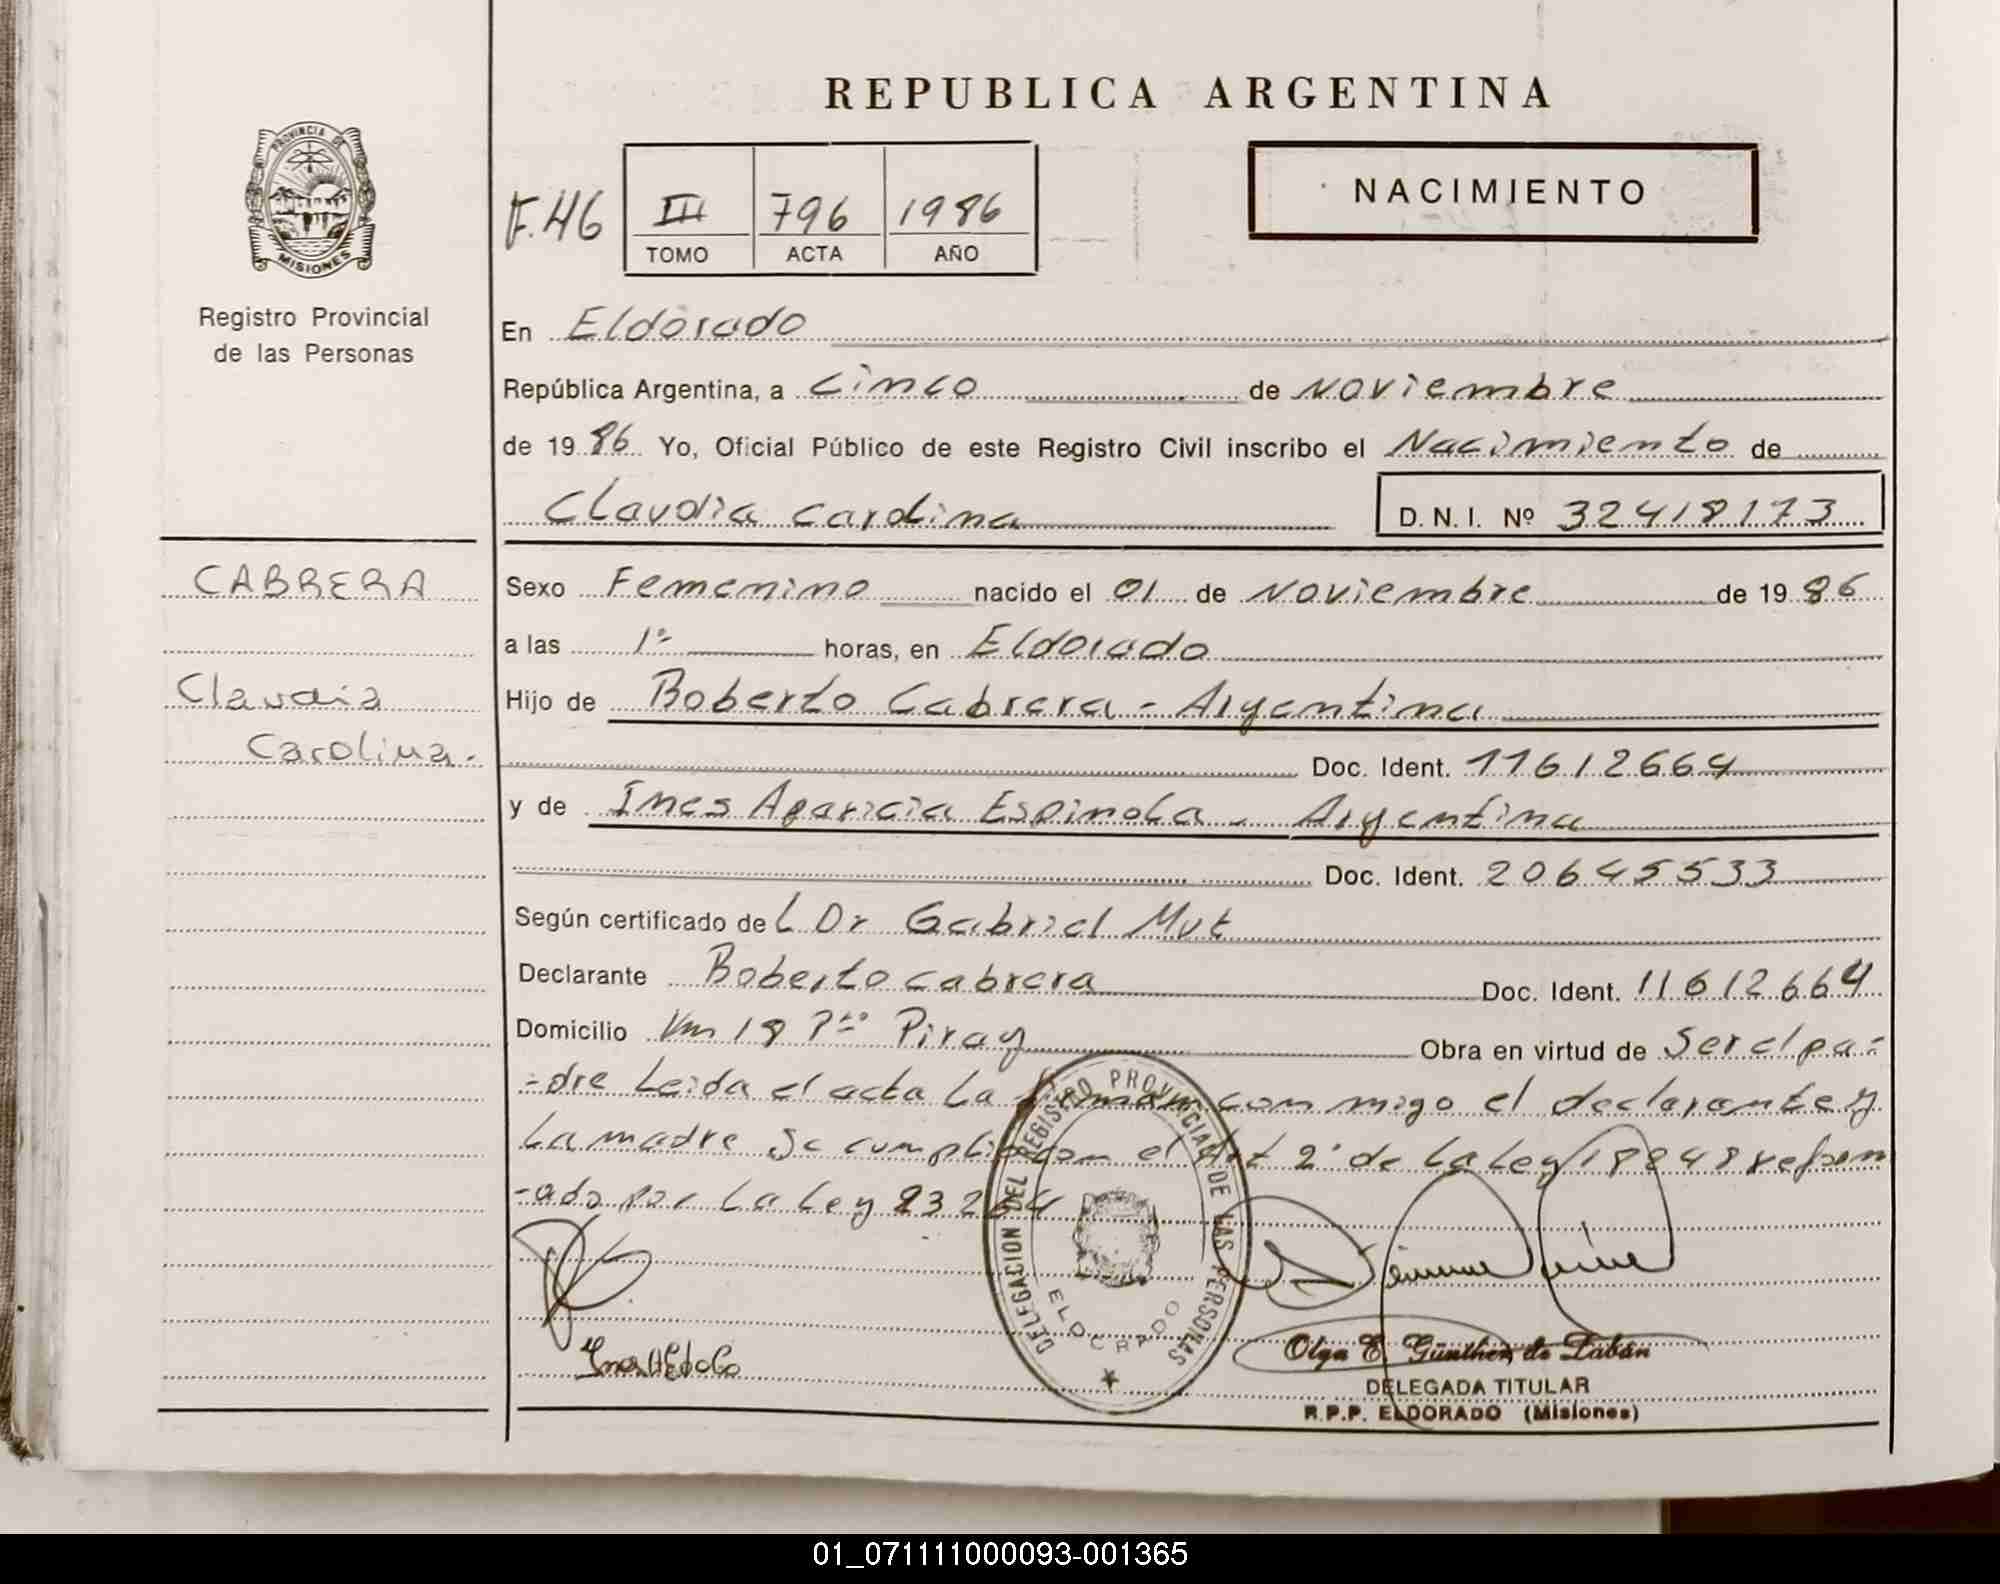 REPUBLICA ARGENTINA
PROVINCIA DE
MISIONES
Registro Provincial
de las Personas
F.46 III 796 1986
TOMO ACTA AÑO
NACIMIENTO
En Eldorado
República Argentina, a Cinco de Noviembre
de 1986 Yo, Oficial Público de este Registro Civil inscribo el Nacimiento de
Claudia Carolina D.N.I. Nº 32418173
CABRERA
Claudia
Carolina.-
Sexo Femenino nacido el 01 de Noviembre de 1986
a las 1º horas, en Eldorado
Hijo de Roberto Cabrera - Argentina
Doc. Ident. 11612664
y de Ines Aparicia Espinola - Argentina
Doc. Ident. 20645533
Según certificado del Dr Gabriel Mut
Declarante Roberto Cabrera Doc. Ident. 11612664
Domicilio Km 18 Pto Piray Obra en virtud de Ser el pa-
-dre Leida el acta La firman con migo el declarante y
La madre Se cumplio con el Art 2º de La Ley 18248 reform
-ado por La Ley 23264
DELEGACION DEL REGISTRO PROVINCIAL DE LAS PERSONAS
ELDORADO
Olga E. Günther de Labán
DELEGADA TITULAR
R.P.P. ELDORADO (Misiones)
01_071111000093-001365